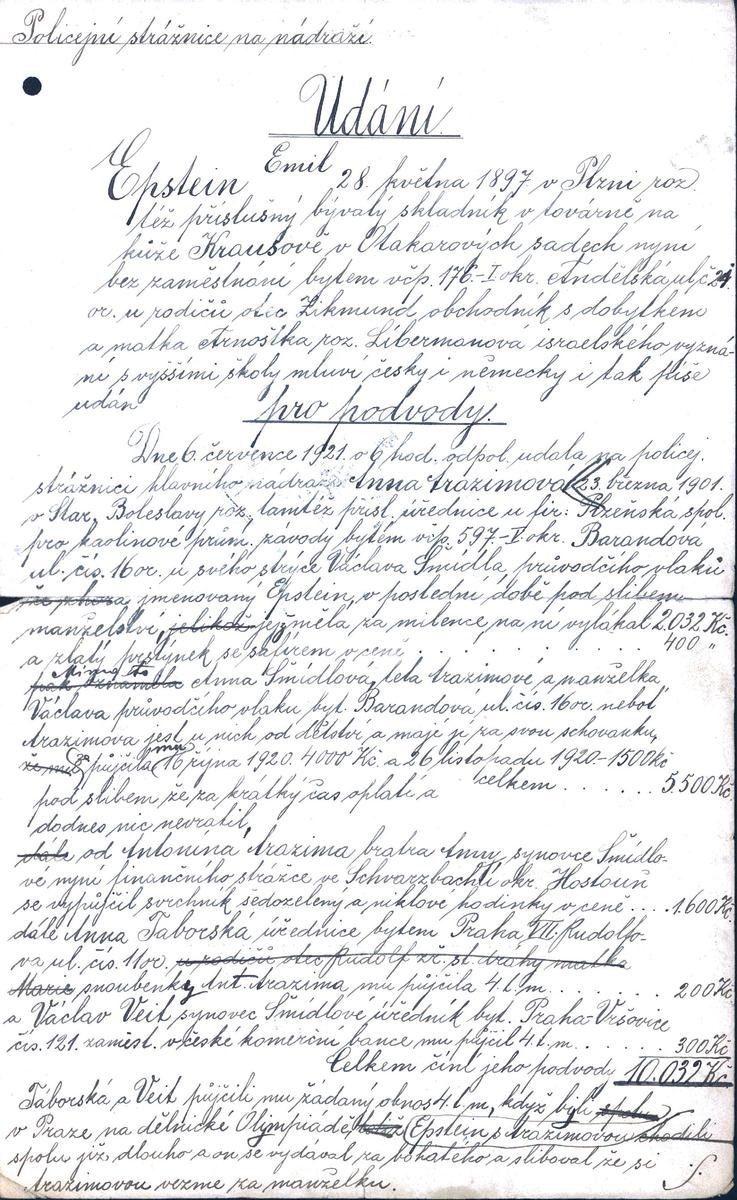 Policejní strážnice na nádraží.
Udání
Epstein Emil 28. května 1897 v Plzni roz.
též příslušný bývalý skladník v továrně na
kůže Krausově v Otakarových sadech nyní
bez zaměstnání bytem v čp. 176.-I okr. Andělská ul. č. 21.
or. u rodičů otec Zikmund obchodník s dobytkem
a matka Arnoštka roz. Libermanová israelského vyzná-
ní s vyššími školy mluví česky i německy i tak píše
udán
pro podvody.
Dne 6. července 1921. o 6 hod. odpol. udala na policej.
strážnici hlavního nádraží Anna Arazimová 23. března 1901.
v Star. Boleslavy roz. tamtéž přísl. úřednice u fir: Plzeňská spol.
pro kaolinové prům. závody bytem v čp. 597.-V. okr. Barandova
ul. čís. 16 or. u svého strýce Václava Šmídla, průvodčího vlaku
že zhora jmenovaný Epstein, v poslední době pod slibem
manželství, jelikož jej měla za milence, na ní vylákal 2.032 Kč.
a zlatý prstýnek se safírem v ceně . . . . . . . . . . 400 "
Mimo to
pak oznámila Anna Šmídlová, teta Arazimové a manželka
Václava průvodčího vlaku byt. Barandova ul. čís. 16 or. neboť
Arazimova jest u nich od dětství a mají ji za svou schovanku,
že mu půjčila mu 16 října 1920. 4000 Kč. a 26 listopadu 1920 - 1500 Kč
celkem . . . . . . 5.500 Kč.
pod slibem že za krátký čas oplatí a
dodnes nic nevrátil,
dále od Antonína Arazima bratra Anny, synovce Šmídlo-
vé nyní finančního strážce ve Schwarzbachu okr. Hostouň
se vypůjčil svrchník šedozelený a niklové hodinky v ceně .... 1.600 Kč.
dále Anna Táborská úřednice bytem Praha VII. Rudolfo-
va ul. čís. 11 or. u rodičů otec Rudolf zř. st. dráhy matka
Marie snoubenky Ant. Arazima mu půjčila 4. t. m. . . . . . . . 200 Kč
a Václav Veit synovec Šmídlové úředník byt. Praha-Vršovice
čís. 121. zaměst. v české komerční bance mu půjčil 4. t. m. . . . . . 300 Kč
Celkem činí jeho podvody 10.032 Kč.
Táborská a Veit půjčili mu žádaný obnos 4. t. m, když byli spolu
v Praze na dělnické Olympiádě, Epstein s Arazimovou chodili
spolu již dlouho a on se vydával za bohatého a sliboval že si
Arazimovou vezme za manželku.